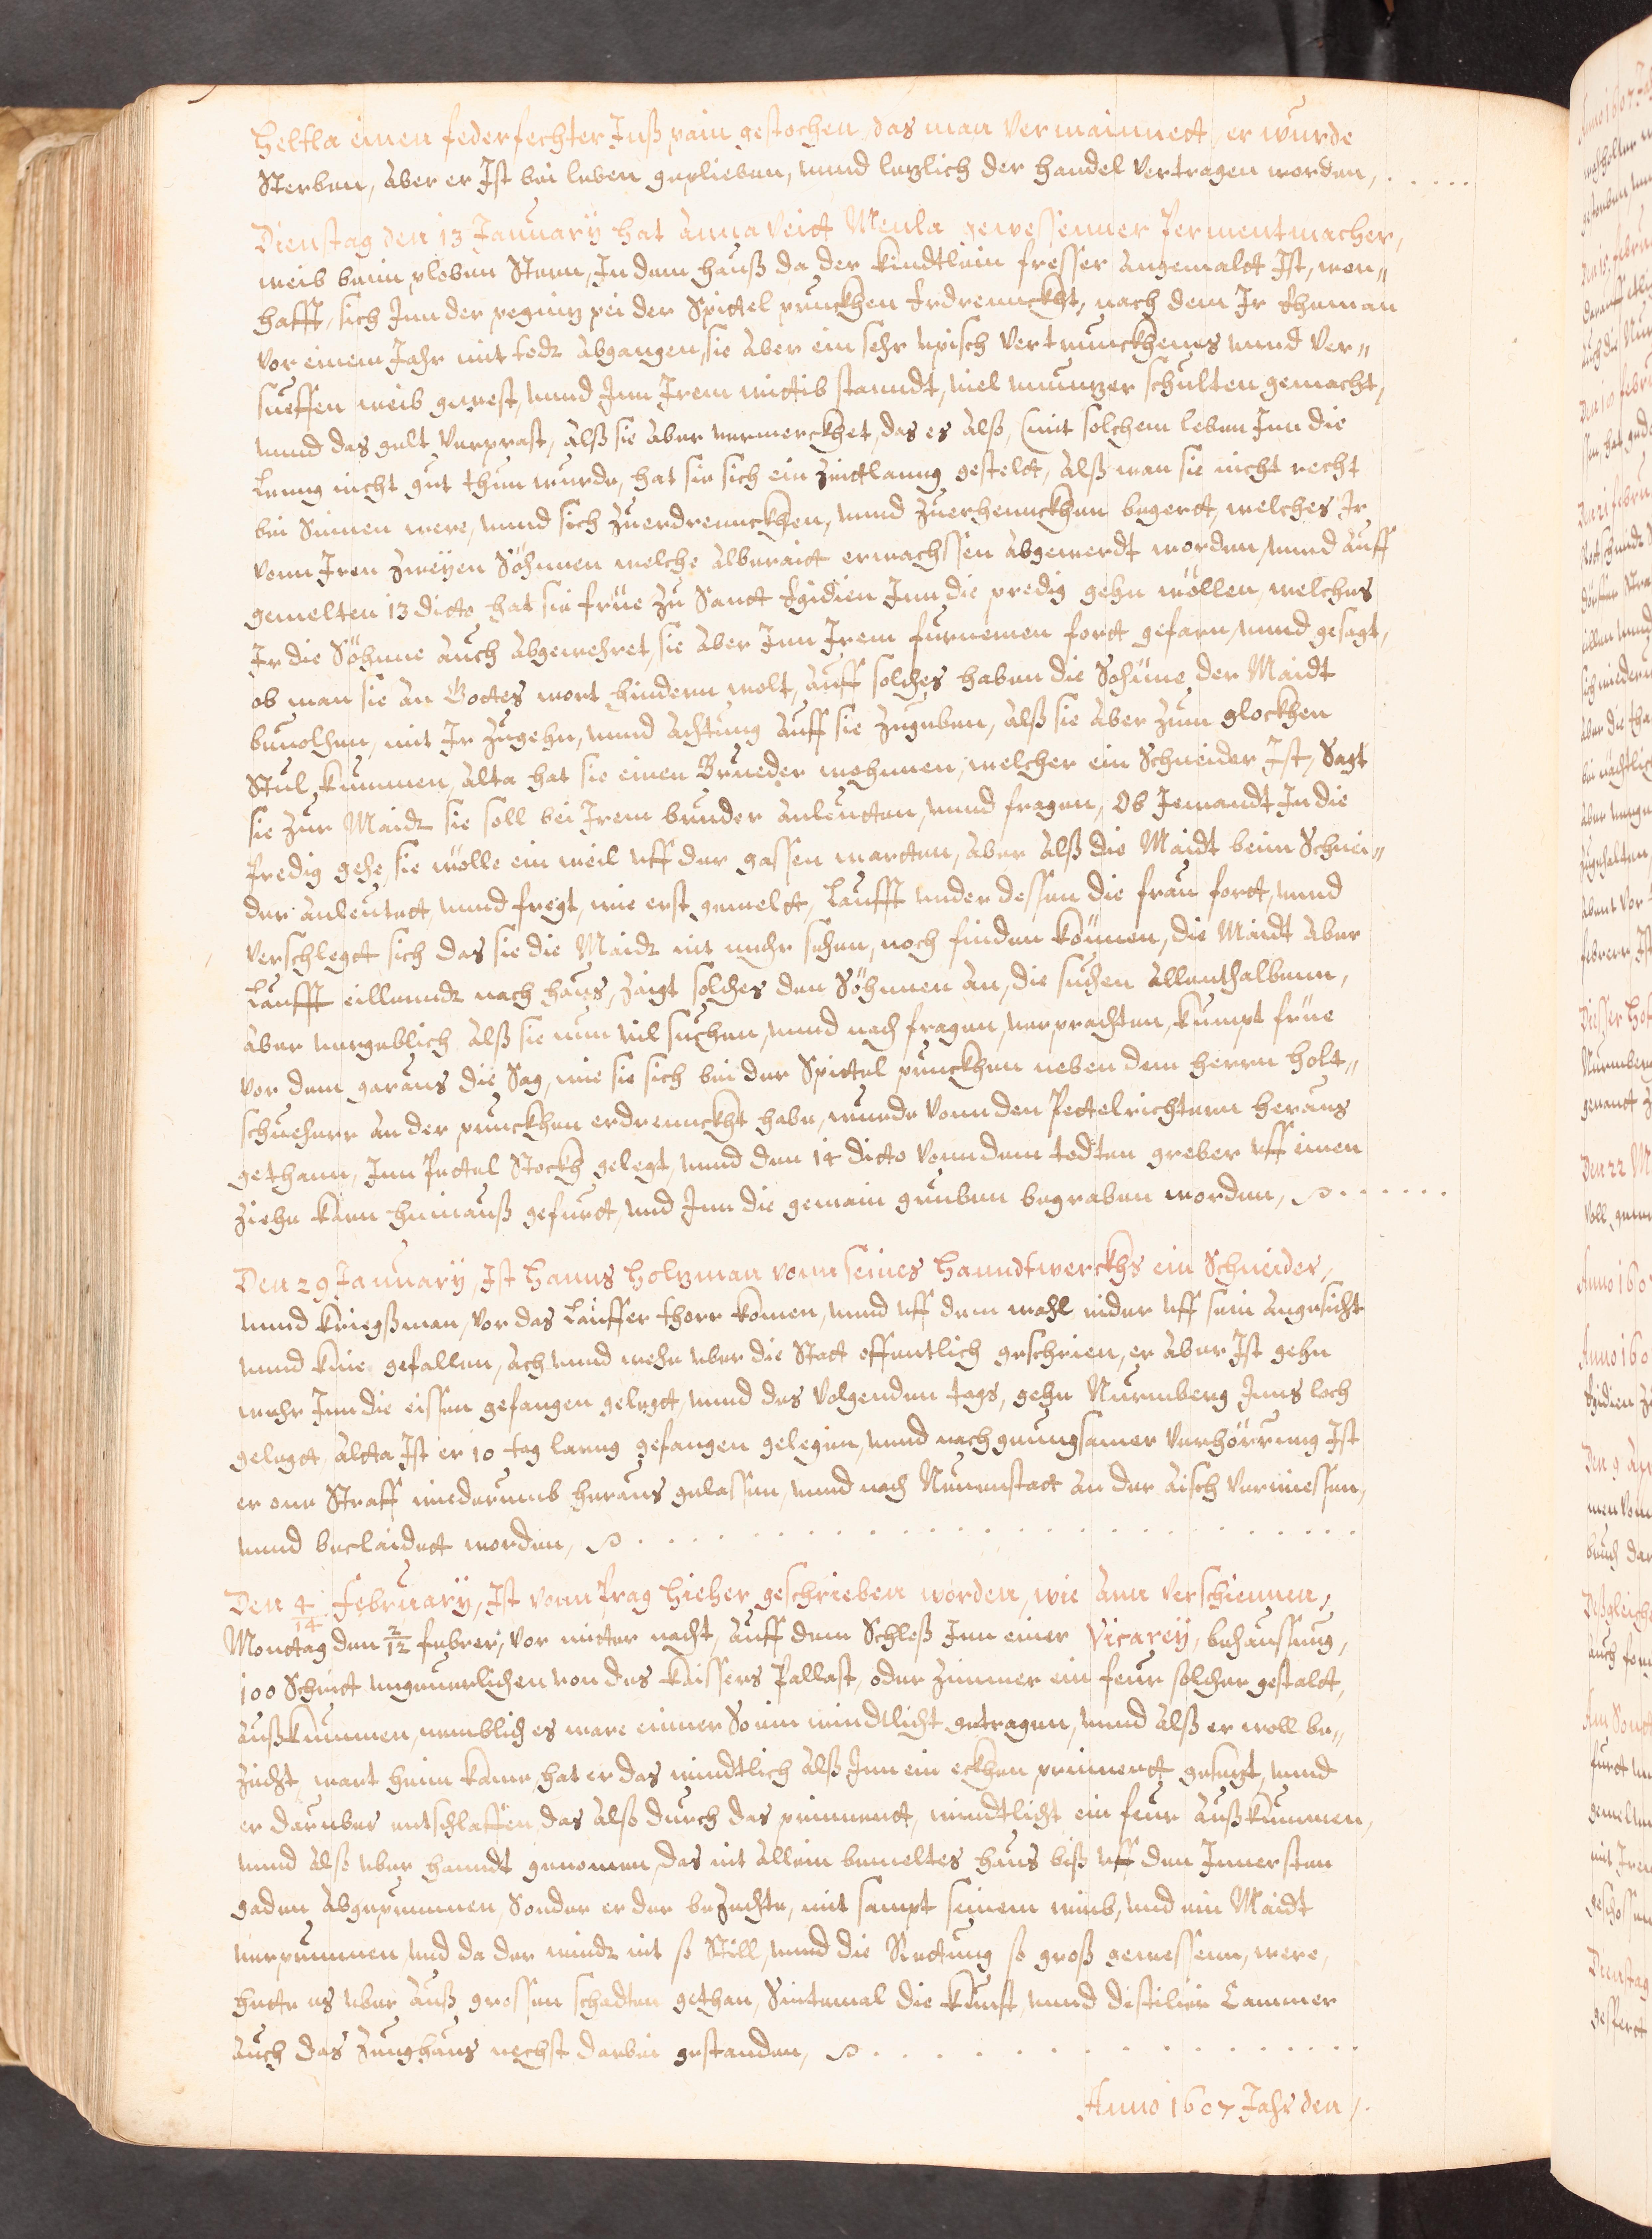 Heltla einen federfechter Inß pain gestochen, das man vermainnett, er wurde
Sterben, Aber er Ist bei leben geplieben, unnd lezlich der handel vertragen worden,
Dienstag den 13 January hat Anna Veitt Menla gewessenner Permentmacher,
weib beim ploben Stern, In dem hauß da der kindtlein fresser angemaldt Ist, won„
hafft, sich Inn der peginz pei der Spittel pruckhen Erdrennckht, nach dem Ir Eheman
vor einem Jahr mit todt Abgangen, sie Aber ein sehr vertrunckhenes unnd ver„
sueffen weib gewest, unnd Inn Irem wittib stanndt, viel schulten gemacht,
unnd das gelt verprast, Alß sie Aber vermerckhet, das es Alß, (mit solchem leben Inn die
Lenng nicht gut thun wurde, hat sie sich ein Zeittlanng gesteldt, Alß wan sie nicht recht
bei Sinnen were, unnd sich Zuerdrennckhen, unnd Zuerhennckhen begerdt, welches Ir
vonn Iren Zweyen Söhnnen welche Alberaitt erwachssen Abgewerdt worden, unnd Auff
gemelten 13 dicto hat sie früe Zu Sanct Egidien Inn die predig gehn wöllen, welches
Ir die Söhnne Auch Abgewehret, sie Aber Inn Irem furnemen fortt gefarn, unnd gesagt,
ob man sie An Gottes wort hindern wolt, Auff solches haben die Söhnne der Maidt
bevolhen, mit Ir Zugehn, unnd Achtung Auff sie Zugeben, Alß sie Aber Zum glockhen
Stul kummen, Alta hat sie einen Brueder wohnnen, welcher ein Schneider Ist, Sagt
sie Zur Maidt sie soll bei Irem bruder Anleutten, unnd fragen, Ob Iemandt In die
Predig gehe, sie wölle ein weil uff der gassen wartten, Aber Alß die Maidt beim Schnei„
der Anleutett, unnd fregt, wie erst gemeldt, Laufft under dessen die frau fortt, unnd
verschlegtt sich das sie die Maidt nit mehr sehen, noch finden können, die Maidt Aber
Laufft eillenndt nach haus, Zaigt solches den Söhnnen An, die suchen Allenthalbenn,
Aber vergeblich Alß sie nun vil suchen, unnd nach fragen, verprachten, kumpt früe
vor dem garaus die Sag, wie sie sich bei der Spittel pruckhen neben dem herrn Holt„
schueherr An der pruckhen erdrennckht habe, wurde vonn den Pettelrichtern heraus
gethann, Inn Pettel Stockh gelegt, unnd den 14 dicto vonn dem todten greber uff einen
Ziehe karn hinnauß gefurdt, und Inn die gemain gruben begraben worden,
Den 29 January, Ist Hanns Holzman vonn seines Hanndtwerckhs ein Schneider,
unnd kriegßman, vor das Lauffer thorr komen, unnd uff dem wahl nider uff sein Angesicht
unnd knie gefallen, Ach unnd wehe uber die Statt offentlich geschrien, er Aber Ist gehn
wehr Inn die eissen gefangen gelegtt, unnd des volgenden tags, gehn Nurmberg Inns loch
gelegtt, Altta Ist er 10 tag lanng gefangen gelegen, unnd nach genungsamer verhörrung Ist
er one Straff wiederumb heraus gelassen, unnd nach Neuenstatt An der Aisch verwiessen,
unnd beclaidett worden,
Den 4/14 February, Ist vonn Prag hieher geschrieben worden, wie Ann verschiennen,
Montag den 2/12 Febrer, vor mitter nacht, Auff dem Schloß Inn einer Vicarey, behaussung,
100 Schridt ungeverlichen von des kaissers Pallast, oder Zimmer ein feur solcher gestaldt,
Außkummen, nemblich es ware einner So ein windtlicht getragen, unnd Alß er woll be„
Zecht, wart heim kame, hat er das windtlich Alß Inn ein eckhen prinnendt gesezt, unnd
er daruber entschlaffen, das Also durch das prinnendt, windtlicht ein feur Außkummen,
unnd Also uber handt genomen, das nit Allein bemeltes haus biß uff den Innersten
gaden Abgeprunnen, Sonder er der beZechte, mit sampt seinem weib, und ein Maidt
verprunnen, und da der windt nit so Still, unnd die Rettung so groß gewessenn, were,
hette es uber Auß grossen schadten gethan, Sintemal die kunst, unnd distilier Cammer
Auch das Zeughaus nechst darbei gestanden,
Anno 1607 Jahr den